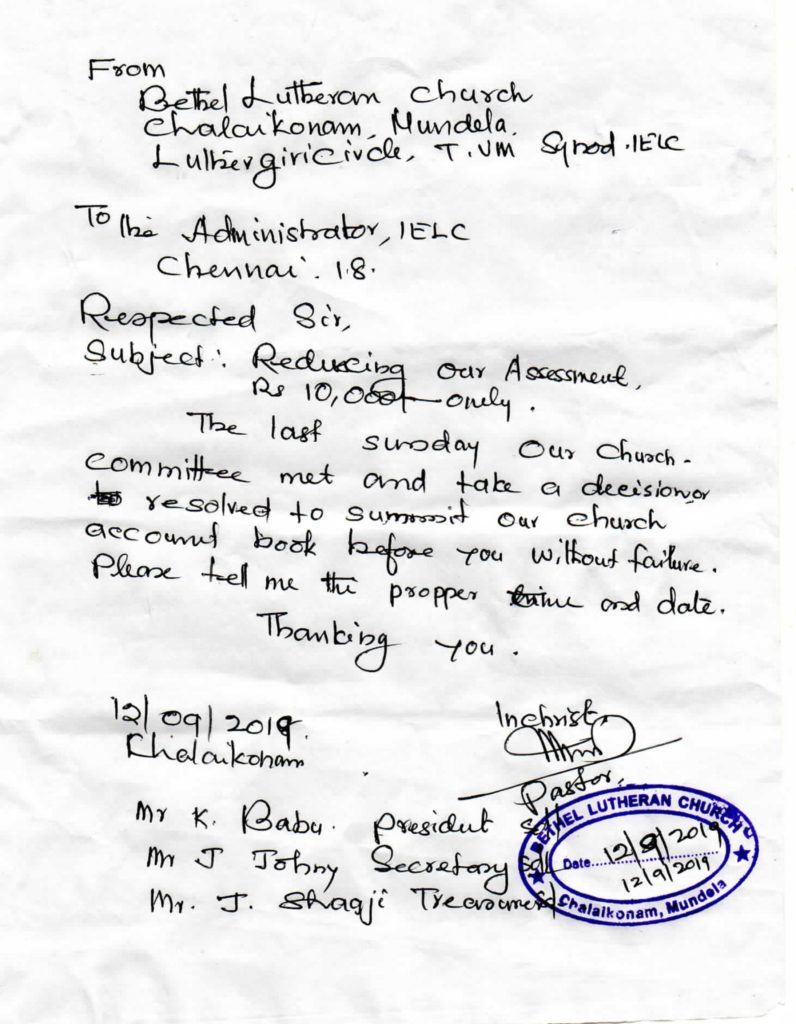 From
Bethel Lutheran Church
Chalaikonam, Mundela.
Luthergiricircle, T.VM Synod.IELC
To the Administrator, IELC
Chennai. 18.
Respected Sir,
Subject: Reducing our Assessment,
Rs 10,000/- only.
The last sunday our church-
committee met and take a decision or
resolved to summit our church
account book before you without failure.
Please tell me the propper time and date.
Thanking you.
12/09/2019.
Chalaikonam
Inchrist,
Pastor,
Mr K. Babu. President Sd/-
Mr J Johny Secretary Sd/-
Mr. J. Shaaji Treasurer Sd/-
BETHEL LUTHERAN CHURCH
Date........ 12/9/2019
12/9/2019
Chalaikonam, Mundela